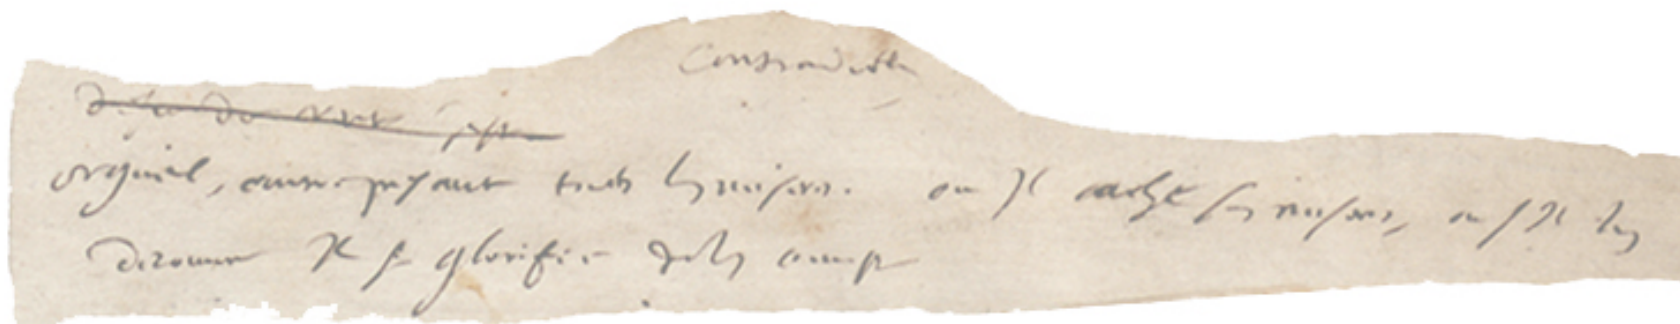 Contradiction
orgueil, contrepesant toutes les miseres. ou Il cache ses miseres, ou s'Il les
decouvre Il se glorifie de les connoistre